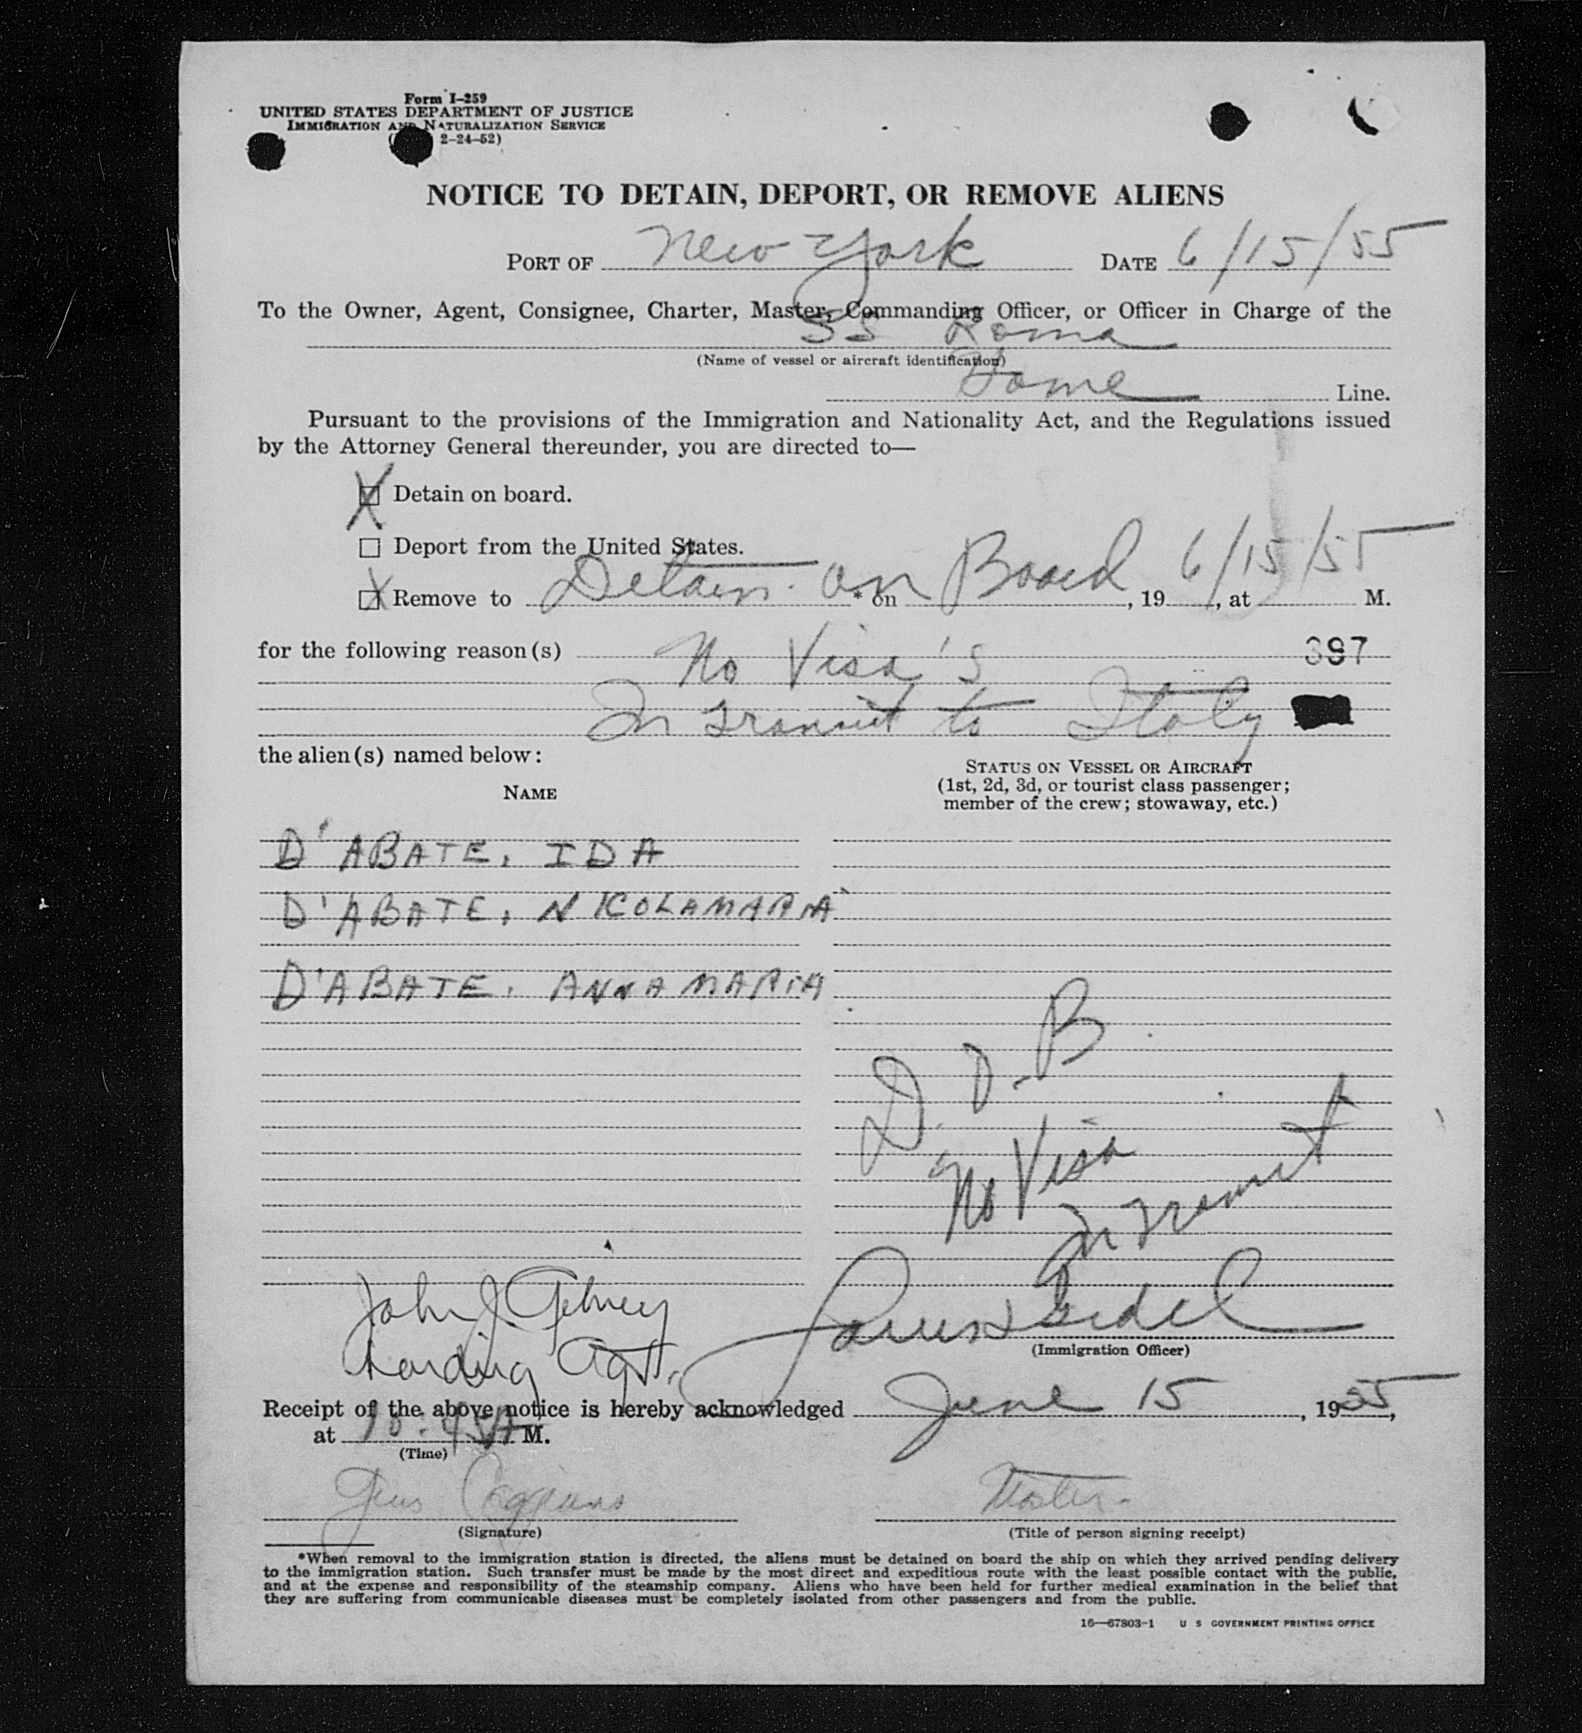 Form I-259
UNITED STATES DEPARTMENT OF JUSTICE
IMMIGRATION AND NATURALIZATION SERVICE
2-24-52)
NOTICE TO DETAIN, DEPORT, OR REMOVE ALIENS
PORT OF New York DATE 6/15/55
To the Owner, Agent, Consignee, Charter, Master, Commanding Officer, or Officer in Charge of the
SS Roma
(Name of vessel or aircraft identification)
Home Line.
Pursuant to the provisions of the Immigration and Nationality Act, and the Regulations issued
by the Attorney General thereunder, you are directed to—
X Detain on board.
Deport from the United States.
X Remove to Detain on Board * on , 19 6/15/55, at M.
for the following reason(s) No Visa's 397
In transit to Italy
the alien(s) named below:
NAME
STATUS ON VESSEL OR AIRCRAFT
(1st, 2d, 3d, or tourist class passenger;
member of the crew; stowaway, etc.)
D'ABATE, IDA
D'ABATE, NICOLAMARIA
D'ABATE, ANNAMARIA
D.O.B
No Visa
In Transit
John J.
Seidel
Agt.
(Immigration Officer)
Receipt of the above notice is hereby acknowledged June 15, 1955,
at 10:45A M.
(Time)
Master
(Signature)
(Title of person signing receipt)
*When removal to the immigration station is directed, the aliens must be detained on board the ship on which they arrived pending delivery
to the immigration station. Such transfer must be made by the most direct and expeditious route with the least possible contact with the public,
and at the expense and responsibility of the steamship company. Aliens who have been held for further medical examination in the belief that
they are suffering from communicable diseases must be completely isolated from other passengers and from the public.
16—67803-1 U S GOVERNMENT PRINTING OFFICE